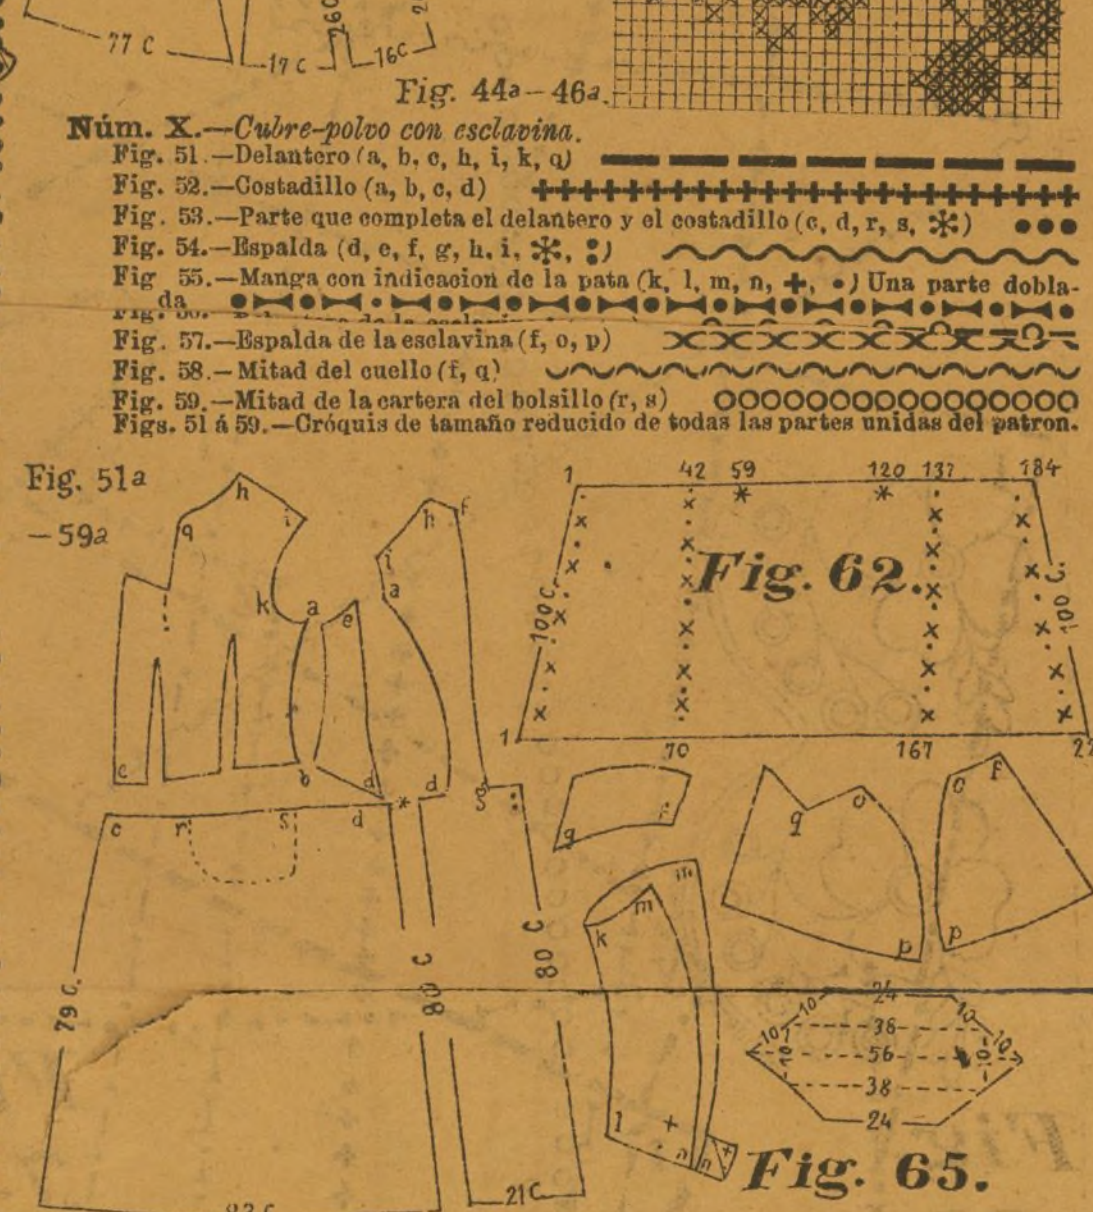 77 C
17 C
16C
Fig. 44a—46a.
Núm. X.—Cubre-polvo con esclavina.
Fig. 51.—Delantero (a, b, c, h, i, k, q)
Fig. 52.—Costadillo (a, b, c, d)
Fig. 53.—Parte que completa el delantero y el costadillo (c, d, r, s, *)
Fig. 54.—Espalda (d, e, f, g, h, i, *, :)
Fig 55.—Manga con indicacion de la pata (k, l, m, n, +, •) Una parte dobla-
da
Fig. 57.—Espalda de la esclavina (f, o, p)
Fig. 58.—Mitad del cuello (f, q)
Fig. 59.—Mitad de la cartera del bolsillo (r, s)
Figs. 51 á 59.—Cróquis de tamaño reducido de todas las partes unidas del patron.
Fig. 51a
—59a
h
q
i
k
a
c
b
e
d
h
f
i
a
d
g
1
42
59
120
137
184
*
*
100 C.
Fig. 62.
100 C.
1
70
167
c
r
s
d
*
79 C.
80 C
80 C
21 C
q
k
m
m
l
+
n
n
+
q
o
p
o
f
p
24
10
10
38
10
10
56
10
10
38
24
Fig. 65.